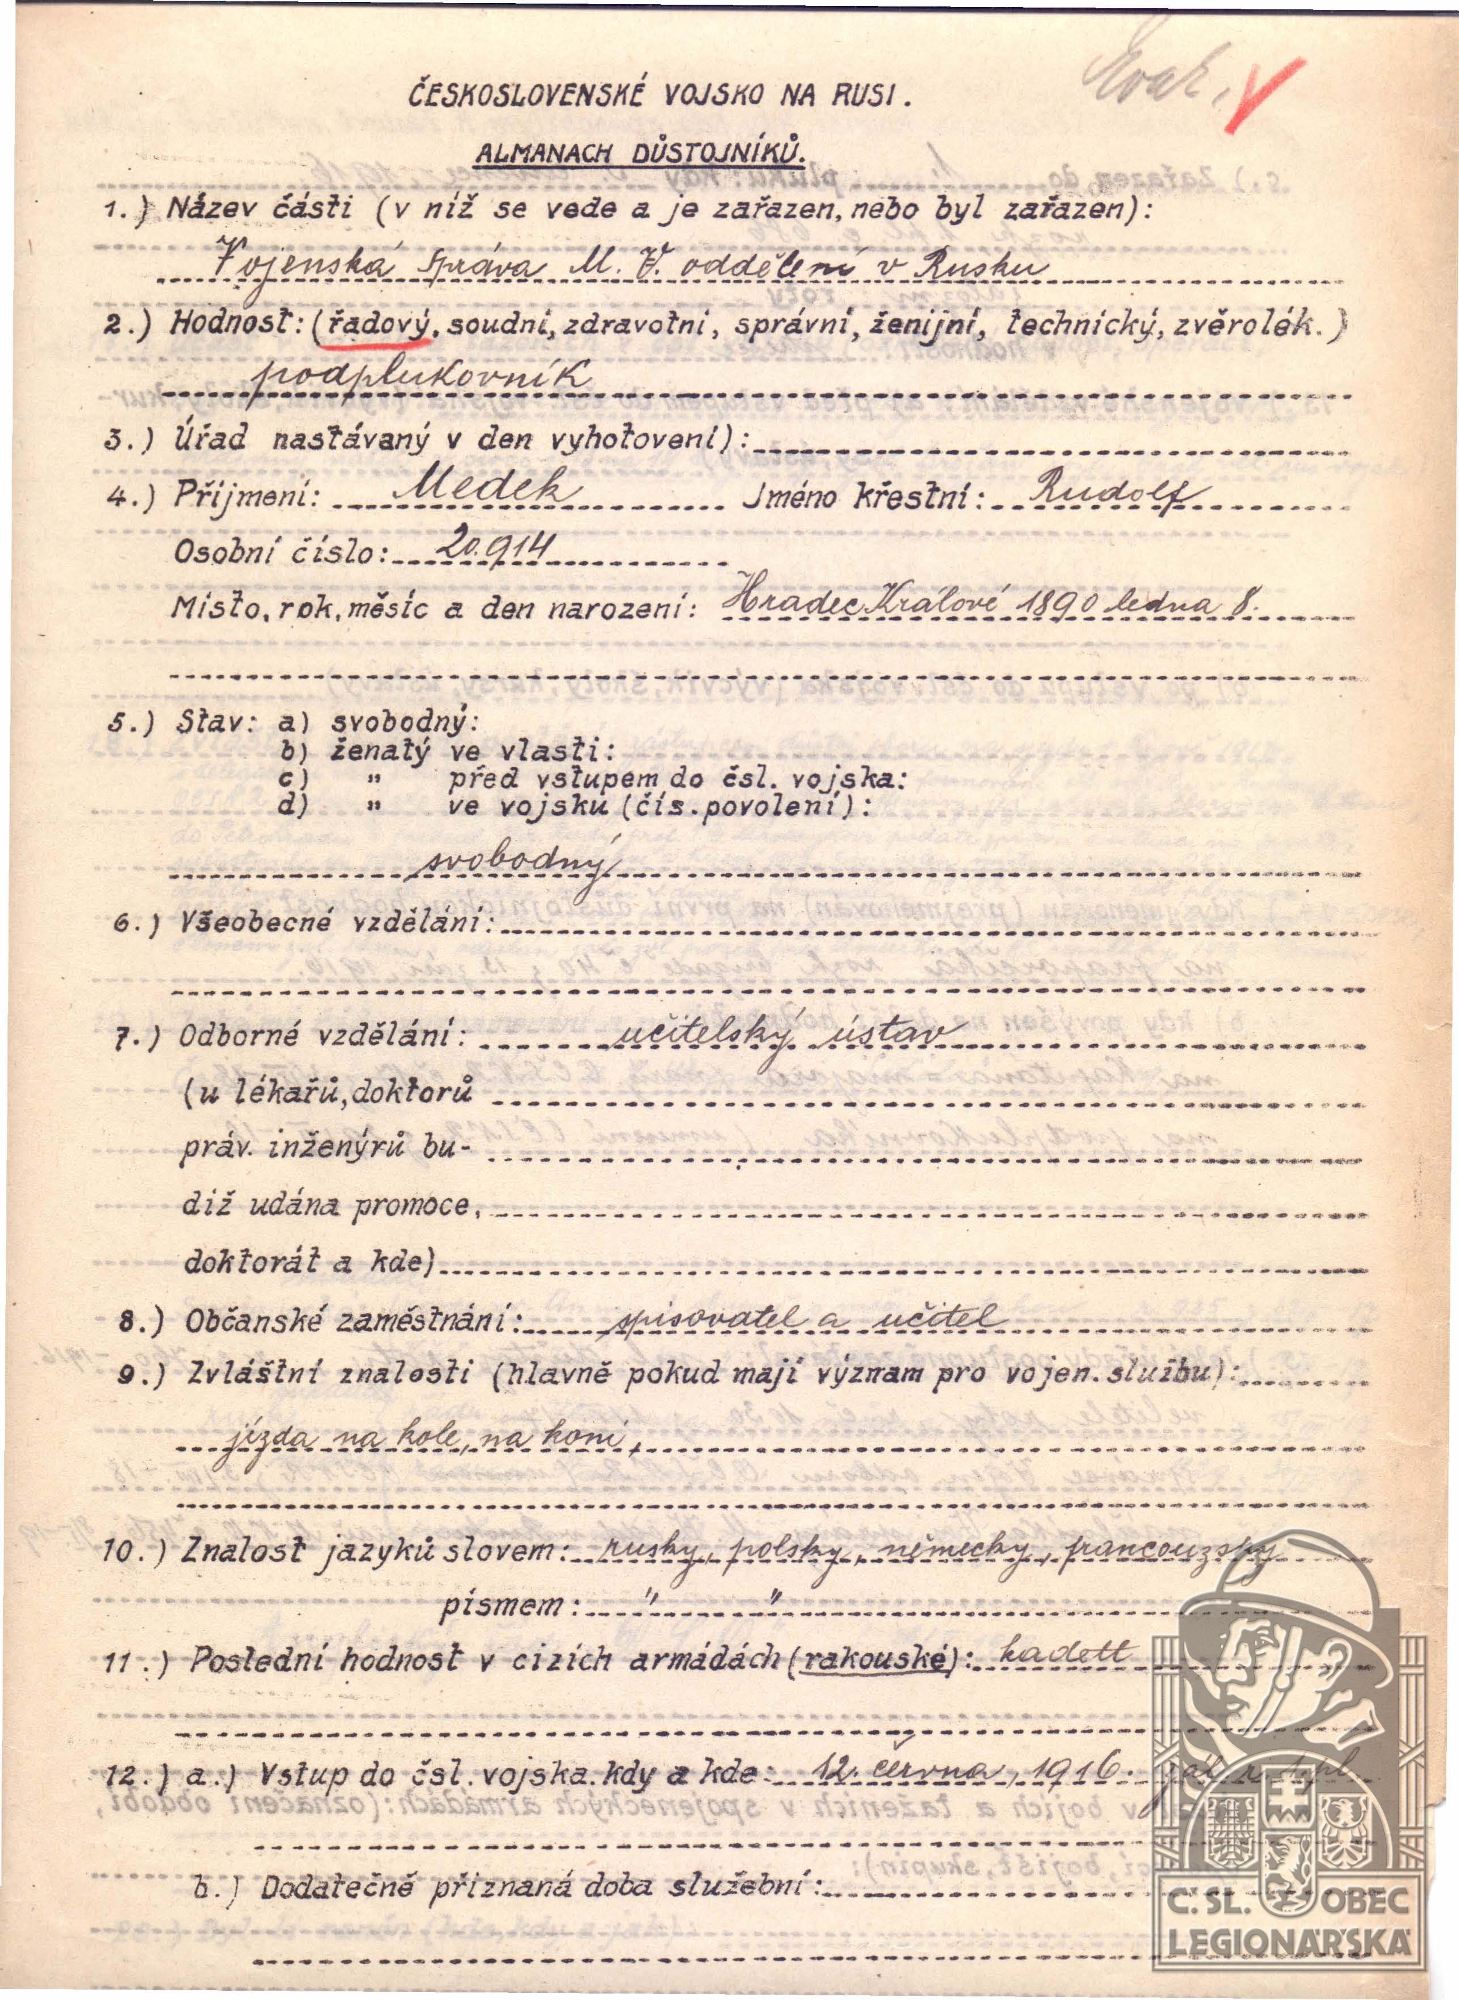 ČESKOSLOVENSKÉ VOJSKO NA RUSI.
ALMANACH DŮSTOJNÍKŮ.
1.) Název části (v níž se vede a je zařazen, nebo byl zařazen):
Vojenská správa M. V. oddělení v Rusku
2.) Hodnost: (řadový, soudní, zdravotní, správní, ženijní, technický, zvěrolék.)
podplukovník
3.) Úřad nastávaný v den vyhotovení):
4.) Příjmení: Medek Jméno křestní: Rudolf
Osobní číslo: 20.914
Místo, rok, měsíc a den narození: Hradec Králové 1890 ledna 8.
5.) Stav: a) svobodný:
b) ženatý ve vlasti:
c) " před vstupem do čsl. vojska:
d) " ve vojsku (čís. povolení):
svobodný
6.) Všeobecné vzdělání:
7.) Odborné vzdělání: učitelský ústav
(u lékařů, doktorů
práv. inženýrů bu-
diž udána promoce,
doktorát a kde)
8.) Občanské zaměstnání: spisovatel a učitel
9.) Zvláštní znalosti (hlavně pokud mají význam pro vojen. službu):
jízda na kole, na koni,
10.) Znalost jazyků slovem: rusky, polsky, německy, francouzsky
písmem: " "
11.) Poslední hodnost v cizích armádách (rakouské): kadett
12.) a.) Vstup do čsl. vojska. kdy a kde: 12. června, 1916. 1. pl.
b.) Dodatečně přiznaná doba služební:
Č. SL. OBEC
LEGIONÁŘSKÁ